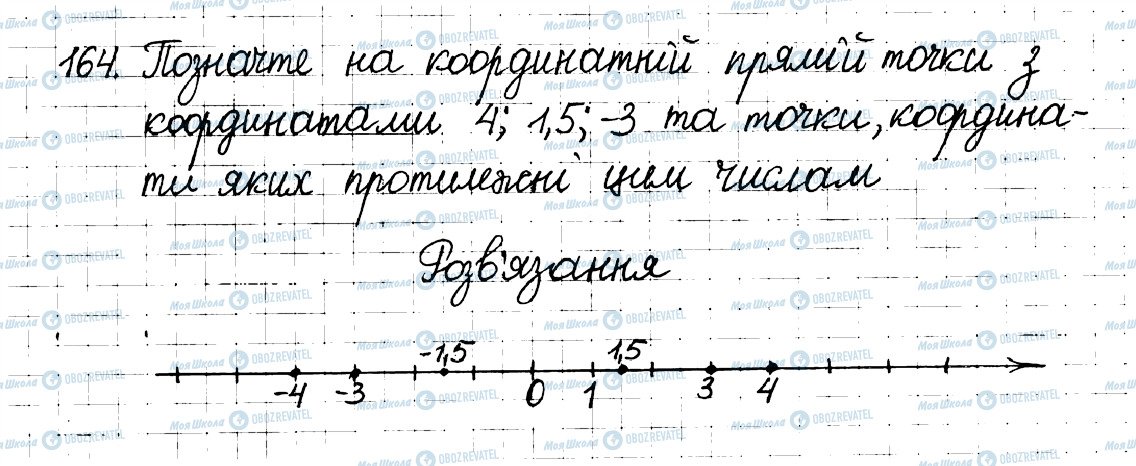 164. Позначте на координатній прямій точки з
координатами 4; 1,5; -3 та точки, координа-
ти яких протилежні цим числам
Розв'язання
-1,5 1,5
-4 -3 0 1 3 4
Моя Школа OBOZREVATEL